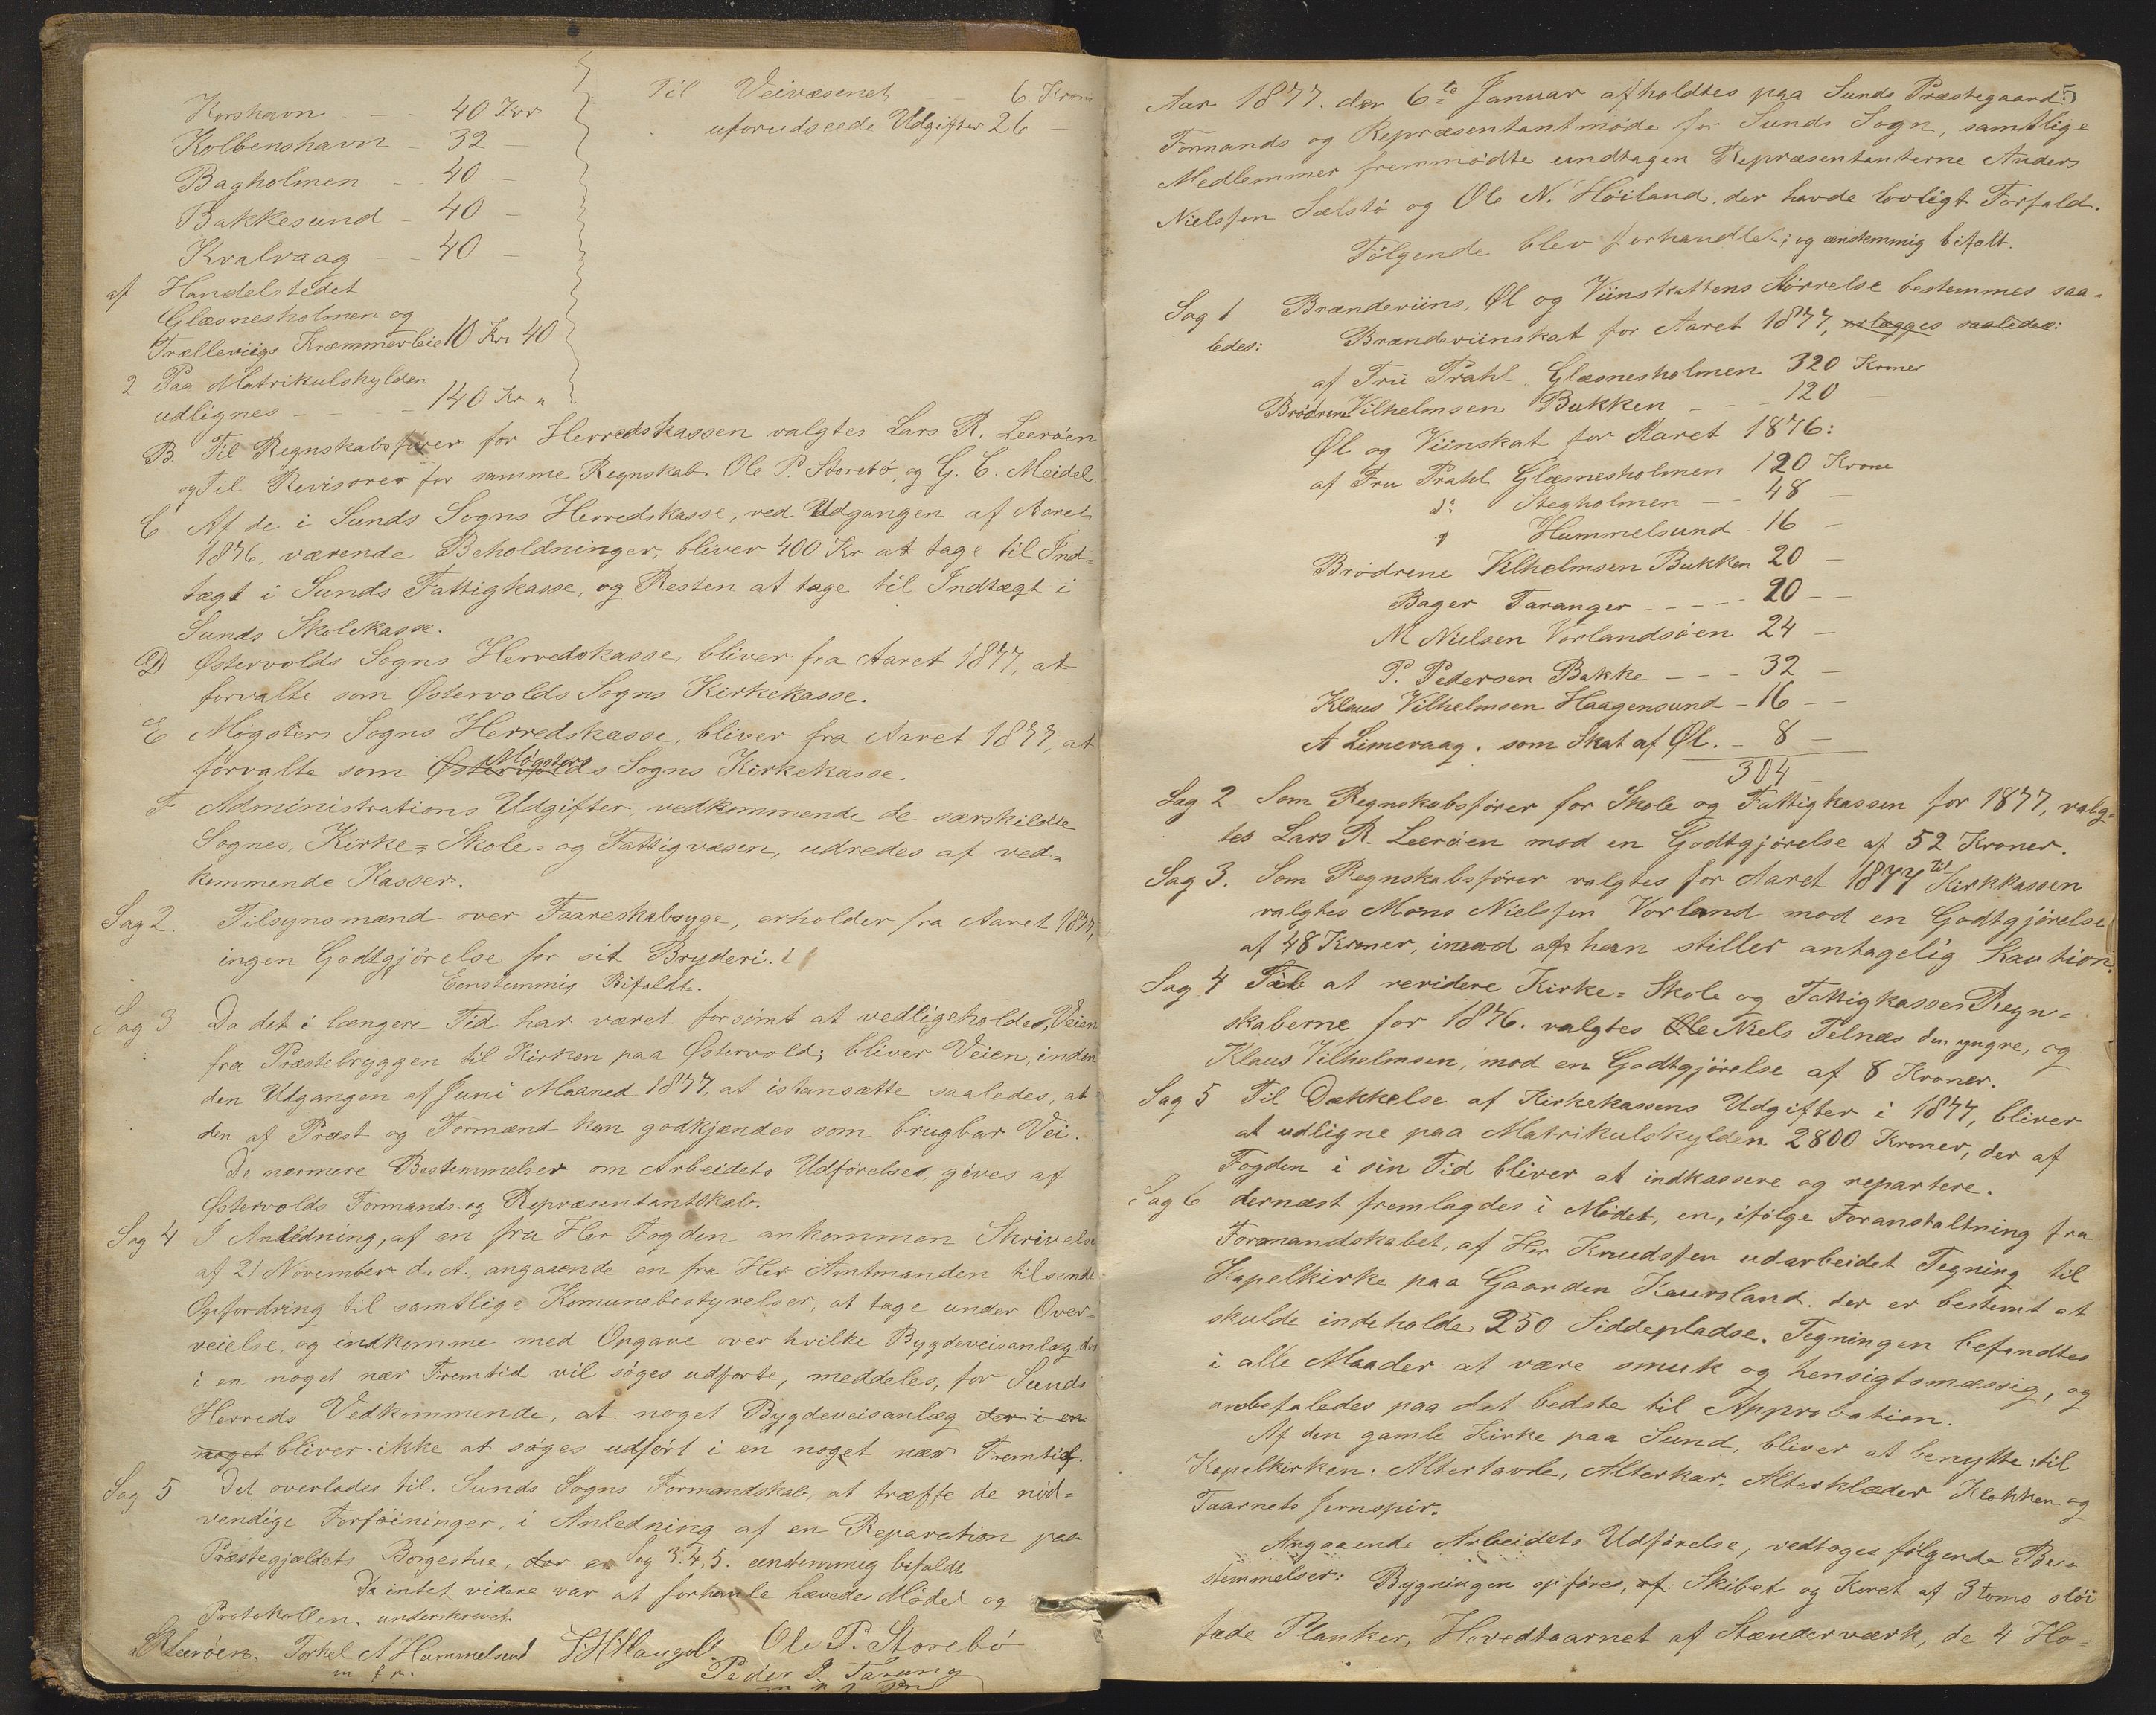 Korshavn - - 40 Kor
Kolbenshavn - 32 -
Bagholmen - - 40 -
Bakkesund - 40 -
Kvalvaag - - 40 -
af Handelstedet
Glæsnesholmen og
Trælleviigs Kræmmerleie 10 Kr 40
2 Paa Matrikulskylden
udlignes - - - - 140 Kr "
Til Veivæsenet - - 6 Kron
uforudseede Udgifter 26 -
B. Til Regnskabsfører for Herredskassen valgtes Lars R. Leerøen
og Til Revisorer for samme Regnskab Ole P. Storebø, og G. C. Meidel.
C Af de i Sunds Sogns Herredskasse, ved Udgangen af Aaret
1876, værende Beholdninger, bliver 400 Kr at tage til Ind-
tægt i Sunds Fattigkasse, og Resten at tage til Indtægt i
Sunds Skolekasse.
D Østervolds Sogns Herredskasse, bliver fra Aaret 1877, at
forvalte som Østervolds Sogns Kirkekasse.
E Møgsters Sogns Herredskasse, bliver fra Aaret 1877, at
forvalte som Østervolds Møgsters Sogns Kirkekasse.
F Administrations Udgifter, vedkommende de særskildte
Sognes, Kirke- Skole- og Fattigvæsen, udredes af ved-
kommende Kasser.
Sag 2. Tilsynsmænd over Faareskabsyge, erholder fra Aaret 1877,
ingen Godtgjørelse for sit Bryderi.
Eenstemmig Bifaldt.
Sag 3 Da det i længere Tid har været forsömt at vedligeholde, Veien
fra Præstebryggen til Kirken paa Østervold; bliver Veien, inden
den Udgangen af Juni Maaned 1877, at istansætte saaledes, at
den af Præst og Formænd kan godkjendes som brugbar Vei.
De nærmere Bestemmelser om Arbeidets Udførelse, gives af
Østervolds Formands og Repræsentantskab.
Sag 4 I Anledning, af en fra Her Fogden ankommen Skrivelse
af 21 November d. A., angaaende en fra Her Amtmanden tilsendt
Opfordring til samtlige Komunebestyrelser, at tage under Over-
veielse, og indkomme med Opgave over hvilke Bygdeveisanlæg der
i en noget nær Fremtid vil søges udførte, meddeles, for Sunds
Herreds Vedkommende, at noget Bygdeveisanlæg der i en
noget bliver ikke at søges udført i en noget nær Fremtid.
Sag 5 Det overlades til Sunds Sogns Formandskab, at træffe de nød-
vendige Forföininger, i Anledning af en Reparation paa
Præstegjældets Borgestue, der er Sag 3.4.5. eenstemmig bifaldt
Da intet videre var at forhanle hævedes Mødet og
Protokollen underskrevet.
L R Leerøen. Torkel A Hummelsund Ole P. Storebø
m f r. Peder P. Tarang
Aar 1877. den 6te Januar afholdtes paa Sunds Præstegaard 5
Formands og Repræsentantmøde for Sunds Sogn, samtlige
Medlemmer fremmødte undtagen Repræsentanterne Anders
Nielsen Sælstö og Ole N. Höiland, der havde lovligt Forfald.
Følgende blev forhandlet; og eenstemmig bifalt.
Sag 1 Brændeviins, Øl og Viinskattens Størrelse bestemmes saa-
ledes: Brændeviinskat for Aaret 1877, erlægges saaledes:
af Fru Prahl Glæsnesholmen 320 Kroner
Brødrene Vilhelmsen Bukken - - - 120 -
Øl og Viinskat for Aaret 1876:
af Fru Prahl Glæsnesholmen 120 Krone
do Stegholmen - - 48 -
" Hummelsund - 16 -
Brödrene Vilhelmsen Bukken 20 -
Bager Taranger - - - - - 20 - -
M Nielsen Vorlandsøen 24 -
P. Pedersen Bakke - - - 32 -
Klaus Vilhelmsen Haagensund - 16 - -
A Limevaag. som Skat af Øl. - 8 -
304 -
Sag 2 Som Regnskabsfører for Skole og Fattigkassen for 1877, valg-
tes Lars R. Leerøen mod en Godtgjørelse af 52 Kroner.
Sag 3. Som Regnskabsfører valgtes for Aaret 1877 til Kirkkassen
valgtes Mons Nielsen Vorland mod en Godtgjørelse
af 48 Kroner, imod at han stiller antagelig Kaution.
Sag 4 Til at revidere Kirke- Skole og Fattigkasses Regn-
skaberne for 1876. valgtes Ole Niels Telnæs den yngre, og
Klaus Vilhelmsen, mod en Godtgjørelse af 8 Kroner.
Sag 5 Til Dækkelse af Kirkekassens Udgifter i 1877, bliver
at udligne paa Matrikulskylden 2800 Kroner, der af
Fogden i sin Tid bliver at indkassere og repartere.
Sag 6 dernæst fremlagdes i Mødet, en, ifølge Foranstaltning fra
Formandskabet, af Her Knudsen udarbeidet Tegning til
Kapelkirke paa Gaarden Kausland. der er bestemt at
skulde indeholde 250 Siddepladse. Tegningen befandtes
i alle Maader at være smuk og hensigtsmæssig, og
anbefaledes paa det bedste til Approbation.
Af den gamle Kirke paa Sund, bliver at benytte til
Kapelkirken: Altertavle, Alterkar, Alterklæder Klokken og
Taarnets Jernspir.
Angaaende Arbeidets Udførelse, vedtoges følgende Be-
stemmelser: Bygningen opføres, af Skibet og Koret af 3 Toms sløi
fede Planker, Hovedtaarnet af Stænderværk, de 4 Ho-